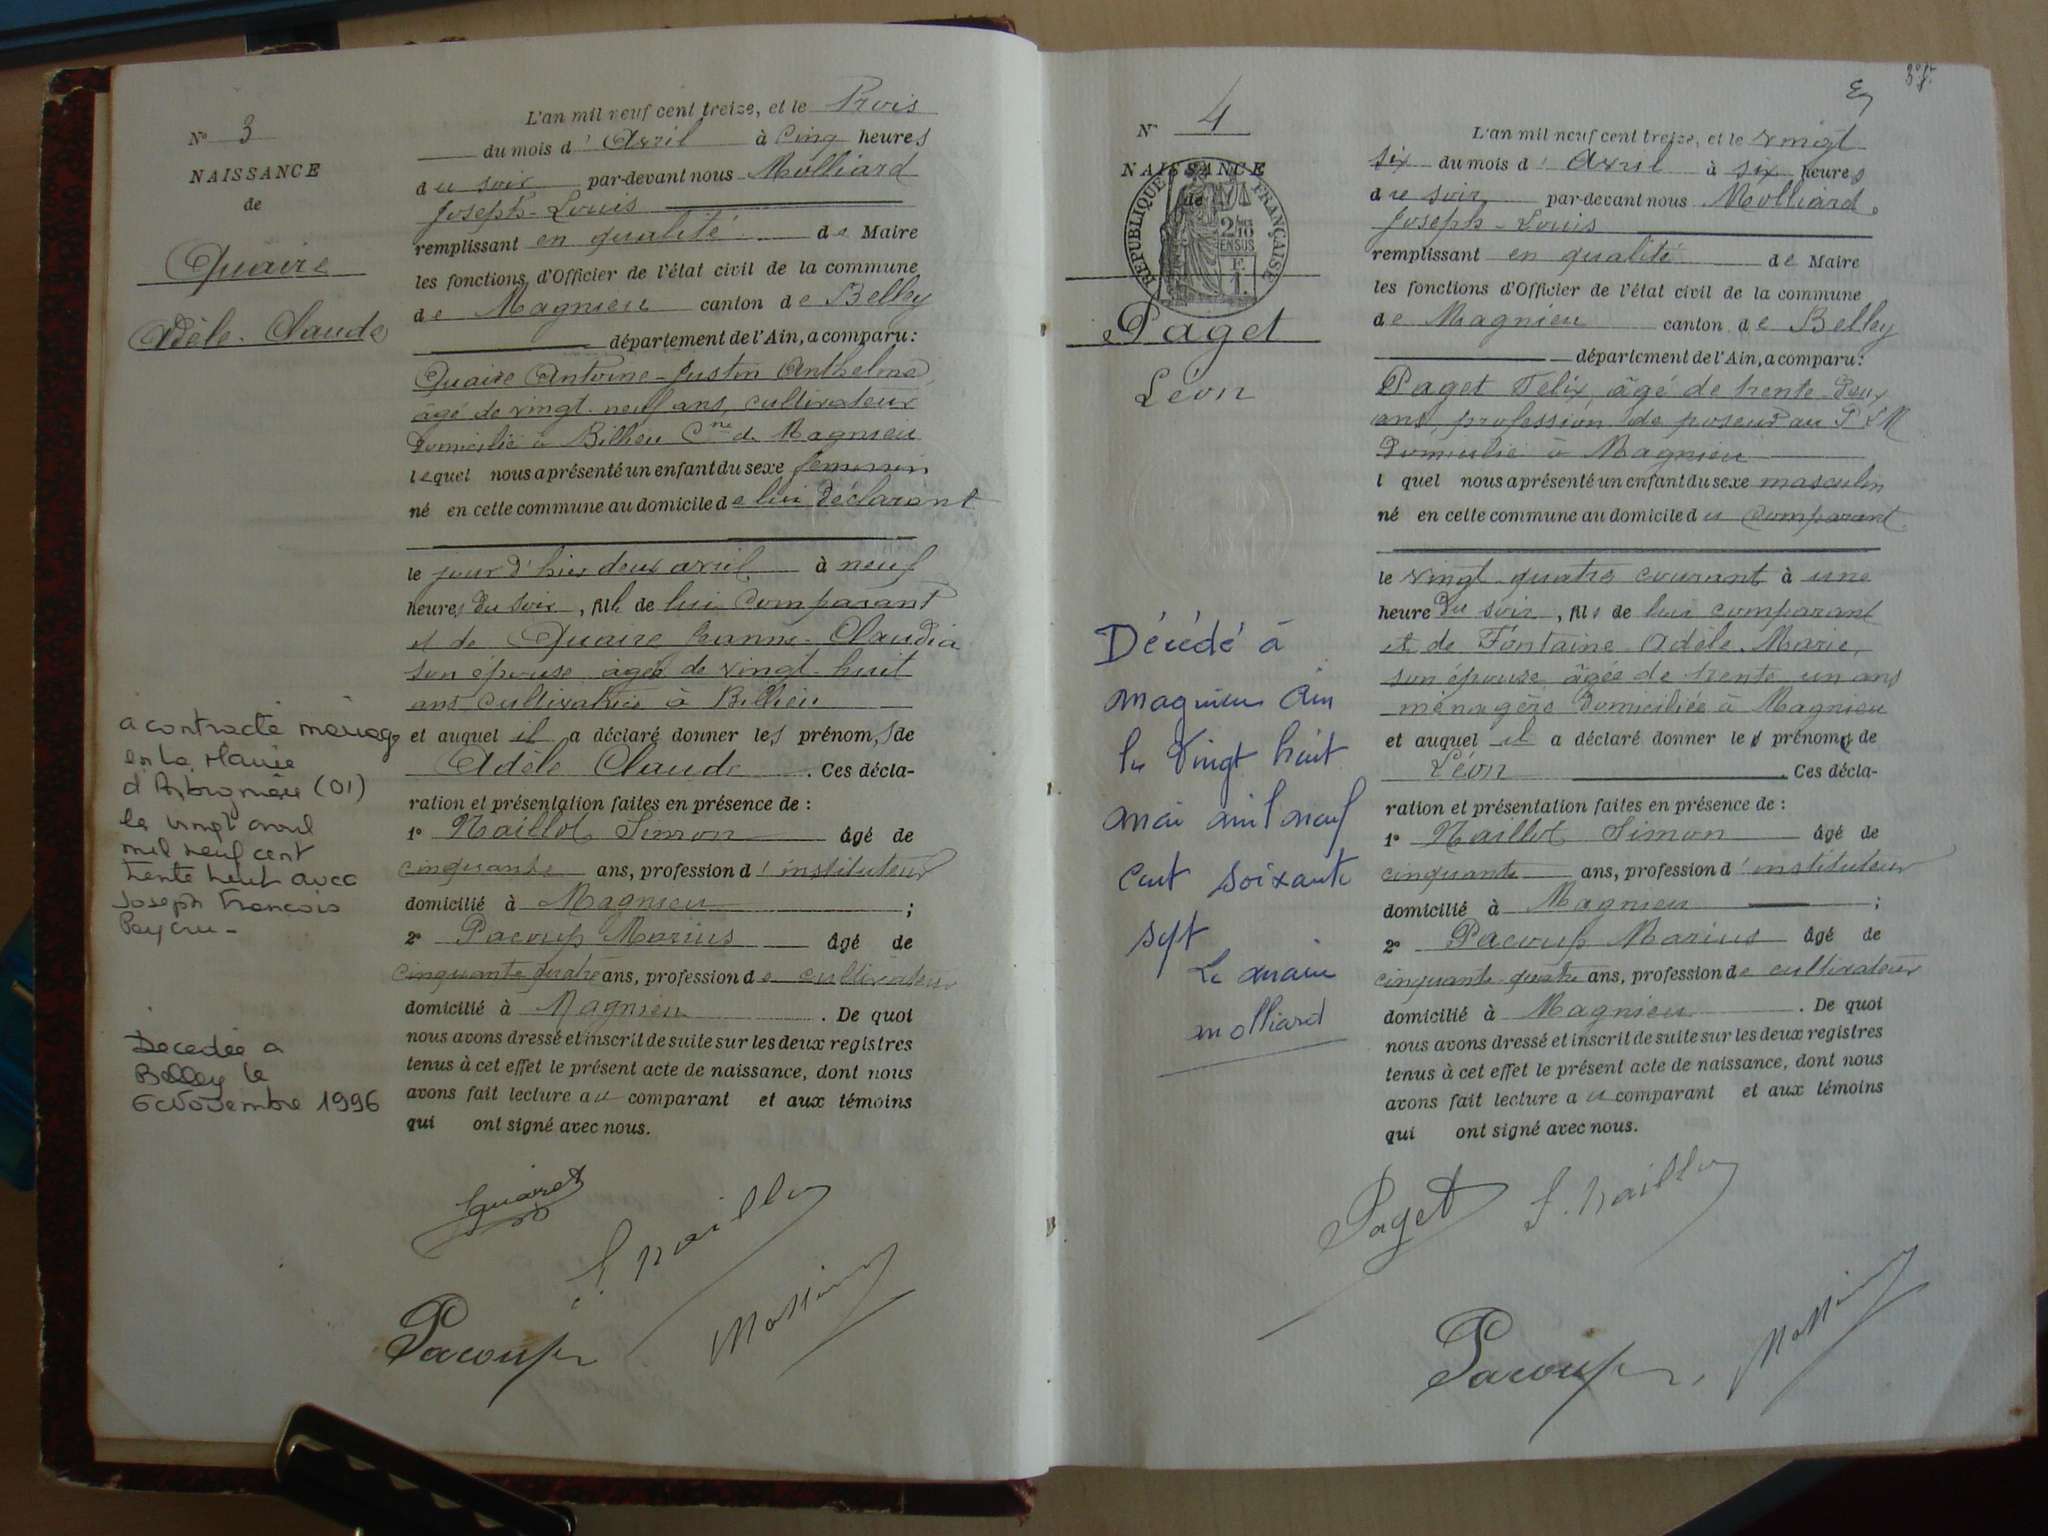 N° 3
NAISSANCE
de
Quaire
Adèle-Claude
a contracté mariage
en la Mairie
d'Arbignieu (01)
le vingt avril
mil neuf cent
trente huit avec
Joseph François
Peycru -
Decedée a
Belley le
6 Novembre 1996
L'an mil neuf cent treize, et le Trois
du mois d'Avril à Cinq heures
du soir par-devant nous Molliard
Joseph-Louis
remplissant en qualité de Maire
les fonctions d'Officier de l'état civil de la commune
de Magnieu canton de Belley
département de l'Ain, a comparu:
Quaire Antoine-Justin Anthelme,
âgé de vingt-neuf ans, cultivateur
domicilié à Billieu Cne de Magnieu
lequel nous a présenté un enfant du sexe féminin
né en cette commune au domicile de lui déclarant
le jour d'hier deux avril à neuf
heures du soir, fille de lui comparant
et de Quaire Jeanne-Claudia
son épouse âgée de vingt-huit
ans cultivatrice à Billieu
et auquel il a déclaré donner les prénoms de
Adèle Claude. Ces décla-
ration et présentation faites en présence de :
1° Naillod Simon âgé de
cinquante ans, profession d'instituteur
domicilié à Magnieu ;
2° Pacoup Marius âgé de
cinquante quatre ans, profession de cultivateur
domicilié à Magnieu. De quoi
nous avons dressé et inscrit de suite sur les deux registres
tenus à cet effet le présent acte de naissance, dont nous
avons fait lecture au comparant et aux témoins
qui ont signé avec nous.
Pacoup
N° 4
NAISSANCE
de
RÉPUBLIQUE FRANÇAISE
Paget
Léon
Décédé à
magnieu Ain
le Vingt huit
mai mil neuf
cent soixante
sept
Le maire
molliard
L'an mil neuf cent treize, et le vingt
six du mois d'Avril à six heures
du soir par-devant nous Molliard
Joseph-Louis
remplissant en qualité de Maire
les fonctions d'Officier de l'état civil de la commune
de Magnieu canton de Belley
département de l'Ain, a comparu:
Paget Félix, âgé de trente-deux
ans, profession de poseur au P L M
Domicilié à Magnieu
l quel nous a présenté un enfant du sexe masculin
né en cette commune au domicile du comparant
le vingt-quatre courant à une
heure du soir, fils de lui comparant
et de Fontaine Adèle-Marie,
son épouse âgée de trente un ans
ménagère domiciliée à Magnieu
et auquel il a déclaré donner le prénom de
Léon. Ces décla-
ration et présentation faites en présence de :
1° Naillod Simon âgé de
cinquante ans, profession d'instituteur
domicilié à Magnieu ;
2° Pacoup Marius âgé de
cinquante-quatre ans, profession de cultivateur
domicilié à Magnieu. De quoi
nous avons dressé et inscrit de suite sur les deux registres
tenus à cet effet le présent acte de naissance, dont nous
avons fait lecture au comparant et aux témoins
qui ont signé avec nous.
Paget
Pacoup